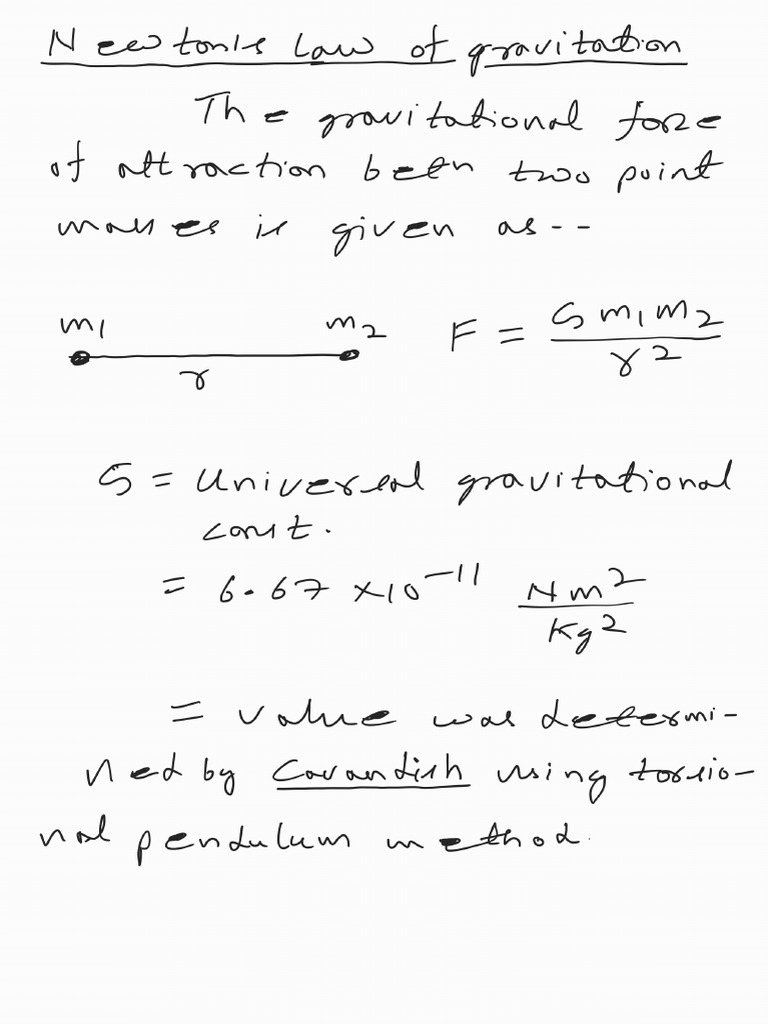 Newton's Law of gravitation
The gravitational force
of attraction betn two point
masses is given as--
m1 m2 F = G m1 m2 / r2
r
G = Universal gravitational
const.
= 6.67 ×10^-11 Nm2 / Kg2
= value was determi-
ned by Cavandish using torsio-
nal pendulum method.